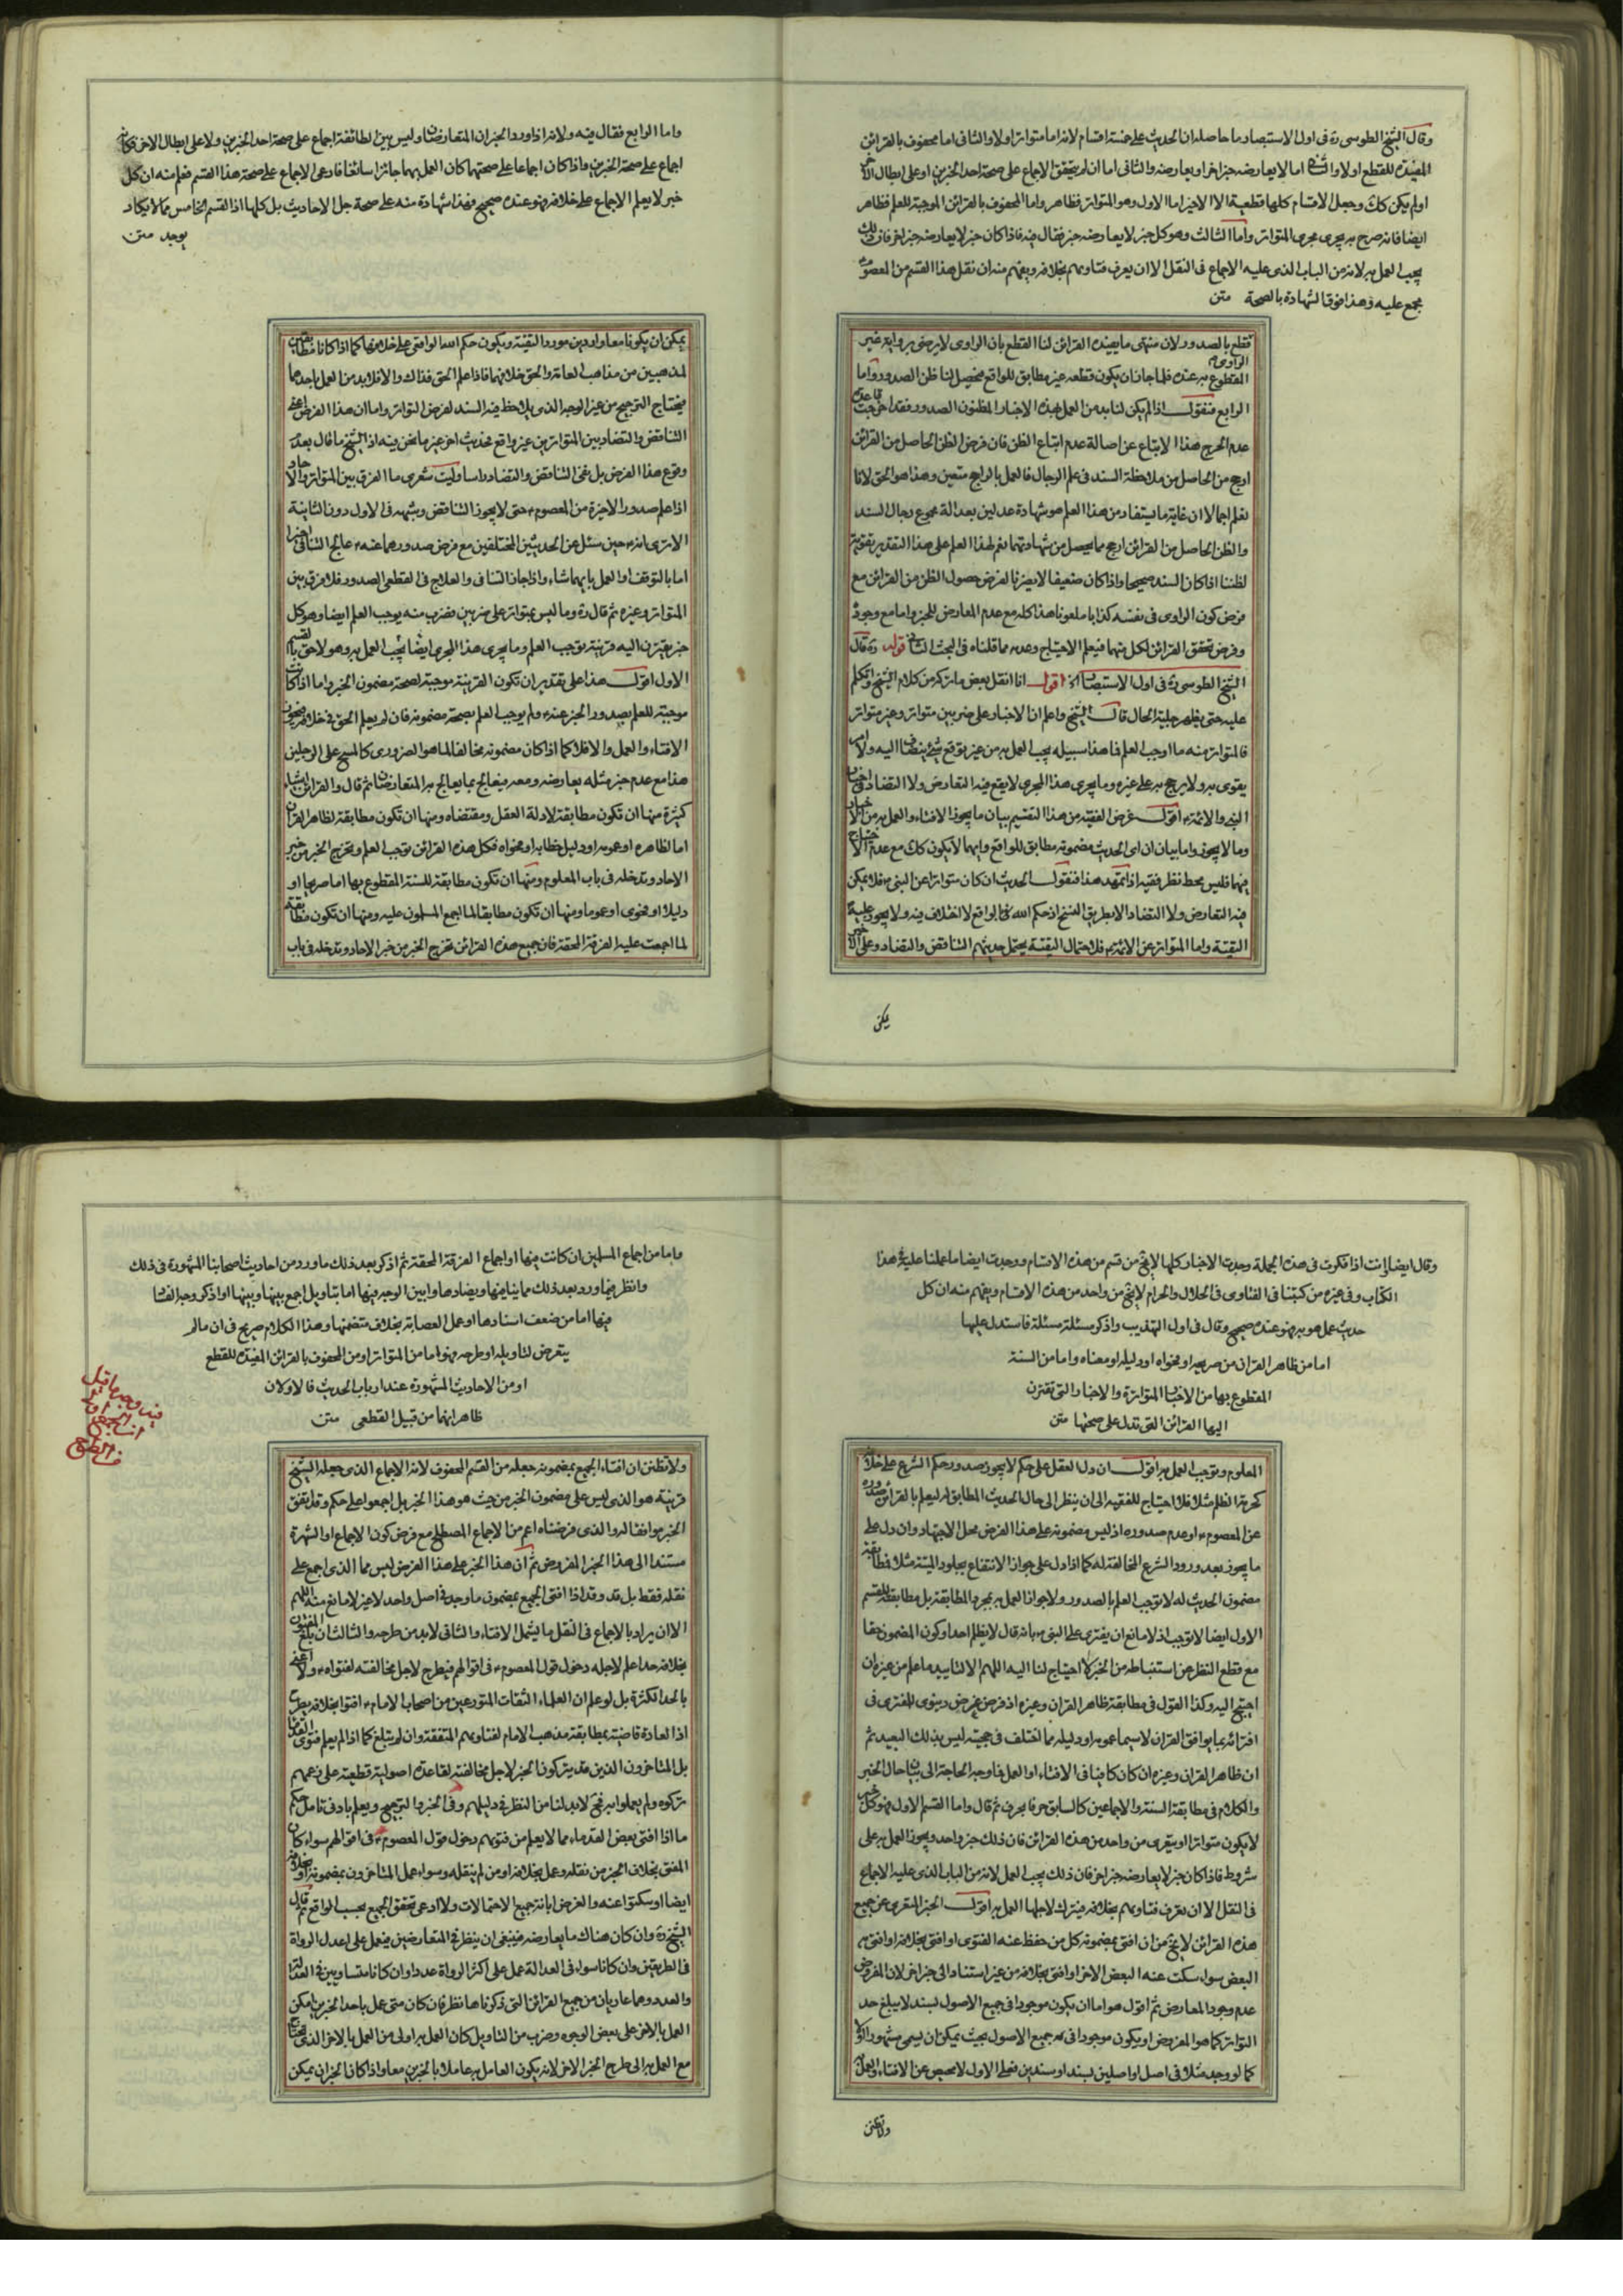 وقال الشيخ الطوسي ره في اول الاستبصار ما حاصله ان الحديث على خمسة اقسام لانه اما متواتر اولا والثاني اما محفوف بالقرائن
المفيدة للقطع اولا والثاني اما لا يعارضه خبر اخر او يعارضه والثاني اما ان لم يتحقق الاجماع على صحة احد الخبرين او على ابطال الاخر
اولم يكن كك وجعل الاقسام كلها قطعية الا الاخير اما الاول وهو المتواتر فظاهر واما المحفوف بالقرائن الموجبة للعلم فظاهر
ايضا فانه صرح به يجرى مجرى المتواتر واما الثالث وهو كل خبر لا يعارضه خبر فقال فيه فاذا كان خبر لا يعارضه خبر اخر فان ذلك
يجب العمل به لانه من الباب الذى عليه الاجماع في النقل الا ان يعرف فتاويهم بخلافه ويفهم منه ان نقل هذا القسم من المعصوم
مجمع عليه وهذا فوق الشهادة بالصحة متن
فقطع بالصدور لان منتهى ما يفيده القرائن لنا القطع بان الراوى لا يرضى برواية غير
المقطوع به عنده فلما جاز ان يكون قطعه غير مطابق للواقع فيحصل لنا ظن الصدور واما
الراوى
الرابع فنقول اذا لم يكن لنا بد من العمل بهذه الاخبار المظنون الصدور فقد اخرجت قاعدة
عدم الحرج هذا الاتباع عن اصالة عدم اتباع الظن فان فرض الظن الحاصل من القرائن
ارجح من الحاصل من ملاحظة السند في علم الرجال فالعمل بالراجح متعين وهذا هو الحق لانا
نعلم اجمالا ان غاية ما يستفاد من هذا العلم هو شهادة عدلين بعدالة مجموع رجال السند
والظن الحاصل من القرائن ارجح مما يحصل من شهادتهما نعم لهذا العلم على هذا التقدير تقوية
لظننا اذا كان السند صحيحا واذا كان ضعيفا لا يضرنا لفرض حصول الظن من القرائن مع
فرض كون الراوى في نفسه كذابا ملعونا هذا كله مع عدم المعارض للخبر واما مع وجوده
وفرض تحقق القرائن لكل منهما فيعلم الاحتياج وعدمه مما قلناه في البحث الثاني قوله ره قال
الشيخ الطوسي ره في اول الاستبصار الخ اقول انا انقل بعض ما تركه من كلام الشيخ واتكلم
عليه حتى يظهر جلية الحال قال الشيخ واعلم ان الاخبار على ضربين متواتر وغير متواتر
فالمتواتر منه ما اوجب العلم فما هذا سبيله يجب العمل به من غير توقع شئ ينضاف اليه ولا امر
يقوى به ولا يرجح به على غيره وما يجرى هذا المجرى لا يقع فيه التعارض ولا التضاد في اخبار
النبي والائمة ع اقول غرض الفقيه من هذا التقسيم بيان ما يجوز الافتاء والعمل به من الاخبار
وما لا يجوز واما بيان ان اى الحديث مضمونه مطابق للواقع وايهما لا يكون كك مع عدم الاحتياج
فيهما فليس محط نظر فقيه اذا تمهد هذا فنقول الحديث ان كان متواترا عن النبي ص فلا يمكن
فيه التعارض ولا التضاد الا بطريق النسخ اذ حكم الله في الواقع لا اختلاف فيه ولا يجوز عليه
التقية واما المتواتر عن الائمة ع فلاحتمال التقية يحتمل حديثهم التناقض والتضاد وعلى الاخير
يمكن
واما الرابع فقال فيه ولانه اذا ورد الخبران المتعارضان وليس بين الطائفة اجماع على صحة احد الخبرين ولا على ابطال الاخر فكانه
اجماع على صحة الخبرين واذا كان اجماعا على صحتهما كان العمل بهما جائزا سائغا فادعى الاجماع على صحة هذا القسم فعلم منه ان كل
خبر لا يعلم الاجماع على خلافه فهو عنده صحيح فهذا شهادة منه على صحة جل الاحاديث بل كلها اذا القسم الخامس مما لا يكاد
يوجد متن
يمكن ان يكونا معا واردين مورد التقية ويكون حكم الله الواقعى على خلافهما كما اذا كانا مطابقين
لمذهبين من مذاهب العامة والحق خلافهما فاذا علم الحق فذاك والا فلا بد من العمل باحدهما
فيحتاج الترجيح من غير الوجه الذى يلاحظ فيه السند لفرض التواتر واما ان هذا الفرض اعنى
التناقض والتضاد بين المتواترين غير واقع فحديث اخر غير ما نحن فيه اذ الشيخ ما قال بعدم
وقوع هذا الفرض بل نفى التناقض والتضاد راسا وليت شعرى ما الفرق بين المتواتر والاحاد
اذا علم صدور الاخيرة من المعصوم ع حتى لا يجوز التناقض وشبهه في الاول دون الثانية
الا ترى انه ع حين سئل عن الحديثين المختلفين مع فرض صدورهما عنه ع عالج التنافى اخيرا
اما بالتوقف او العمل بايهما شاء واذا جاز التنافى والعلاج في القطعى الصدور فلا فرق بين
المتواتر وغيره ثم قال ره وما ليس بمتواتر على ضربين فضرب منه يوجب العلم ايضا وهو كل
خبر يقترن اليه قرينة توجب العلم وما يجرى هذا المجرى ايضا يجب العمل به وهو لاحق بالقسم
الاول اقول هذا على تقدير ان تكون القرينة موجبة لصحة مضمون الخبر واما اذا كانت
موجبة للعلم بصدور الخبر عنه ع ولم يوجب العلم بصحة مضمونه فان لم يعلم الحق في خلافه
الافتاء والعمل والا فلا كما اذا كان مضمونه مخالفا لما هو الضرورى كالمسح على الرجلين
هذا مع عدم خبر مثله يعارضه ومعه فيعالج بما يعالج به المتعارضان ثم قال والقرائن اشياء
كثيرة منها ان تكون مطابقة لادلة العقل ومقتضاه ومنها ان تكون مطابقة لظاهر القران
اما لظاهره او عمومه او دليل خطابه او فحواه فكل هذه القرائن توجب العلم وتخرج الخبر من خبر
الاحاد وتدخله في باب المعلوم ومنها ان تكون مطابقة للسنة المقطوع بها اما صريحا او
دليلا او فحوى او عموما ومنها ان تكون مطابقا لما اجمع المسلمون عليه ومنها ان تكون مطابقة
لما اجمعت عليه الفرقة المحقة فان جميع هذه القرائن تخرج الخبر من خبر الاحاد وتدخله في باب
وقال ايضا وانت اذا فكرت في هذه الجملة وجدت الاخبار كلها لا يخ من قسم من هذه الاقسام ووجدت ايضا ما عملنا عليه في هذا
الكتاب وفي غيره من كتبنا في الفتاوى في الحلال والحرام لا يخ من واحد من هذه الاقسام ويفهم منه ان كل
حديث عمل هو به فهو عنده صحيح وقال في اول التهذيب واذكر مسئلة مسئلة فاستدل عليها
اما من ظاهر القران من صريحه او فحواه او دليله او معناه واما من السنة
المقطوع بها من الاخبار المتواترة والاخبار التى تقترن
اليها القرائن التى تدل على صحتها متن
المعلوم وتوجب العمل به اقول ان دل العقل على حكم لا يجوز صدور حكم الشرع على خلافه
كحرمة الظلم مثلا فلا احتياج للفقيه الى ان ينظر الى حال الحديث المطابق له ليعلم بالقرائن صدوره
عن المعصوم ع او عدم صدوره اذ ليس مضمونه على هذا الفرض محل الاجتهاد وان دل على
ما يجوز بعد ورود الشرع المخالفة له كما اذا دل على جواز الانتفاع بجلود الميتة مثلا فمطابقة
مضمون الحديث له لا توجب العلم بالصدور ولا جواز العمل به بمجرد المطابقة بل مطابقته للقسم
الاول ايضا لا توجب اذ لا مانع ان يفترى على النبي ص بانه قال لا يظلم احد او كون المضمون حقا
مع قطع النظر عن استنباطه من الخبر لا احتياج لنا اليه اللهم الا لتاييد ما علم من غيره ان
احتيج اليه وكذا القول في مطابقة ظاهر القران وغيره اذ فرض غرض دنيوى للمفترى في
افترائه بما يوافق القران لا سيما عمومه او دليله مما اختلف في حجيته ليس بذلك البعيد ثم
ان ظاهر القران وغيره ان كان كافيا في الافتاء او العمل فما وجه الحاجة الى بيان حال الخبر
والكلام في مطابقة السنة والاجماعين كالسابق حرفا بحرف ثم قال واما القسم الاول فهو كل خبر
لا يكون متواترا ويتعرى من واحد من هذه القرائن فان ذلك خبر واحد ويجوز العمل به على
شروط فاذا كان خبر لا يعارضه خبر اخر فان ذلك يجب العمل لانه من الباب الذى عليه الاجماع
في النقل الا ان يعرف فتاويهم بخلافه فيترك لاجلها العمل به اقول الخبر المتعرى عن جميع
هذه القرائن لا يخ من ان افتى بمضمونه كل من حفظ عنه الفتوى او افتى بخلافه او افتى به
البعض سواء سكت عنه البعض الاخر او افتى بخلافه من غير استناد الى خبر اخر لان المفروض
عدم وجود المعارض ثم اقول هو اما ان يكون موجودا في جميع الاصول بسند لا يبلغ حد
التواتر كما هو المفروض او يكون موجودا في جميع الاصول بحيث يمكن ان يسمى مشهورا
كما لو وجد مثلا في اصل او اصلين بسند او سندين فعلى الاول لا محيص عن الافتاء والعمل
ولا تظنن
واما من اجماع المسلمين ان كانت فيها او اجماع الفرقة المحقة ثم اذكر بعد ذلك ما ورد من احاديث اصحابنا المشهورة في ذلك
وانظر فيما ورد بعد ذلك مما ينافيها ويضادها وابين الوجه فيها اما بتاويل اجمع بينها وبينها او اذكر وجه الفساد
فيها اما من ضعف اسنادها او عمل العصابة بخلاف متضمنها وهذا الكلام صريح في ان ما لم
يتعرض لتاويله او طرحه فهو اما من المتواتر او من المحفوف بالقرائن المفيدة للقطع
او من الاحاديث المشهورة عند ارباب الحديث فالاولان
ظاهر انهما من قبيل القطعى متن
ولا تظنن ان افتاء الجميع بمضمونه جعله من القسم المحفوف لانه الاجماع الذى جعله الشيخ
قرينة هو الذى ليس على مضمون الخبر من حيث هو هذا الخبر بل اجمعوا على حكم وقد يتفق
الخبر موافقا له والذى فرضناه اعم من الاجماع المصطلح مع فرض كون الاجماع او الشهرة
مستندا الى هذا الخبر المفروض ثم ان هذا الخبر على هذا الفرض ليس مما الذى اجمع على
نقله فقط بل قد وقد اذا افتى الجميع بمضمون ما وجد في اصل واحد لا غير لا مانع منه اللهم
الا ان يراد بالاجماع في النقل ما يشمل الافتاء والثاني لا بد من طرحه والثالث ان بلغ المفتون
بخلافه حدا علم لاجله دخول قول المعصوم ع في اقوالهم فيطرح لاجل مخالفته لفتواه ع ولا اعنى
بالحد الكثرة بل لو علم ان العلماء الثقات المتورعين من اصحاب الامام ع افتوا بخلافه يطرح
اذا العادة قاضية بمطابقة مذهب الامام لفتاويهم المتفقة وان لم يبلغ كما اذا لم يعلم فتوى القدماء
بل المتاخرون الذين قد يتركون الخبر لاجل مخالفته لقاعدة اصولية قطعية على زعمهم
تركوه ولم يعملوا به فح لا بد لنا من النظر في دليلهم وفى الخبر والترجيح ويعلم بادنى تامل حكم
ما اذا افتى بعض القدماء مما لا يعلم من فتويهم دخول قول المعصوم ع في اقوالهم سواء كان
المفتى بخلاف الخبر من نقله وعمل بخلافه او من لم ينقله وسواء عمل المتاخرون بمضمونه او بخلافه
ايضا او سكتوا عنه والغرض ابانة جميع الاحتمالات ولا ادعى تحقق الجميع بحسب الواقع ثم قال
الشيخ ره وان كان هناك ما يعارضه فينبغى ان ينظر في المتعارضين فيعمل على اعدل الرواة
في الطريقين وان كانا سواء في العدالة عمل على اكثر الرواة عددا وان كانا متساويين في العدالة
والعدد وهما عاريان من جميع القرائن التى ذكرناها نظر فان كان متى عمل باحد الخبرين امكن
العمل بالاخر على بعض الوجوه وضرب من التاويل كان العمل به اولى من العمل بالاخر الذى يحتاج
مع العمل به الى طرح الخبر الاخر لانه يكون العامل به عاملا بالخبرين معا واذا كان الخبران يمكن